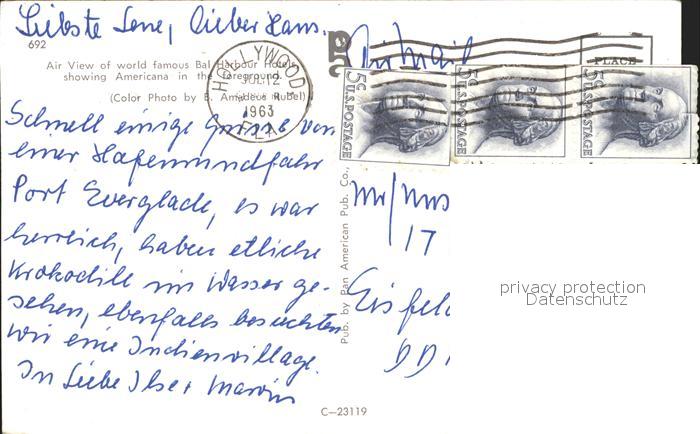 Liebste Lene, lieber Hans.
692
Air View of world famous Bal Harbour Hotels
showing Americana in the foreground.
(Color Photo by B. Amadeus Rubel)
HOLLYWOOD
JUL 12
1963
FLA.
Airmail
PLACE
5c U.S. POSTAGE
5c U.S. POSTAGE
5c U.S. POSTAGE
Schnell einige Grüsse von
einer Hafenrundfahr
Port Everglade, es war
herrlich, haben etliche
Krokodille im Wasser ge-
sehen, ebenfalls besuchten
wir eine Indienvillage.
In Liebe Ilse Marvin
Pub. by Pan American Pub. Co.,
Mr/Mrs
17
Eisfeld
DD
privacy protection
Datenschutz
C-23119